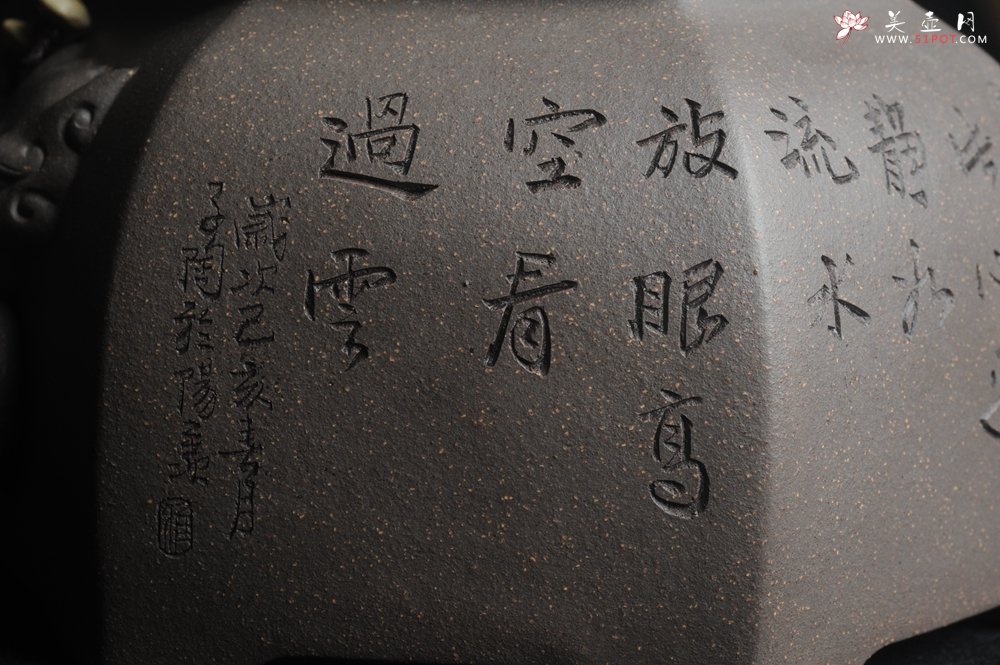 美壶网
WWW.51POT.COM
靜
流水
放眼高
空看
過雲
歲次己亥春月
子陶於陽羨